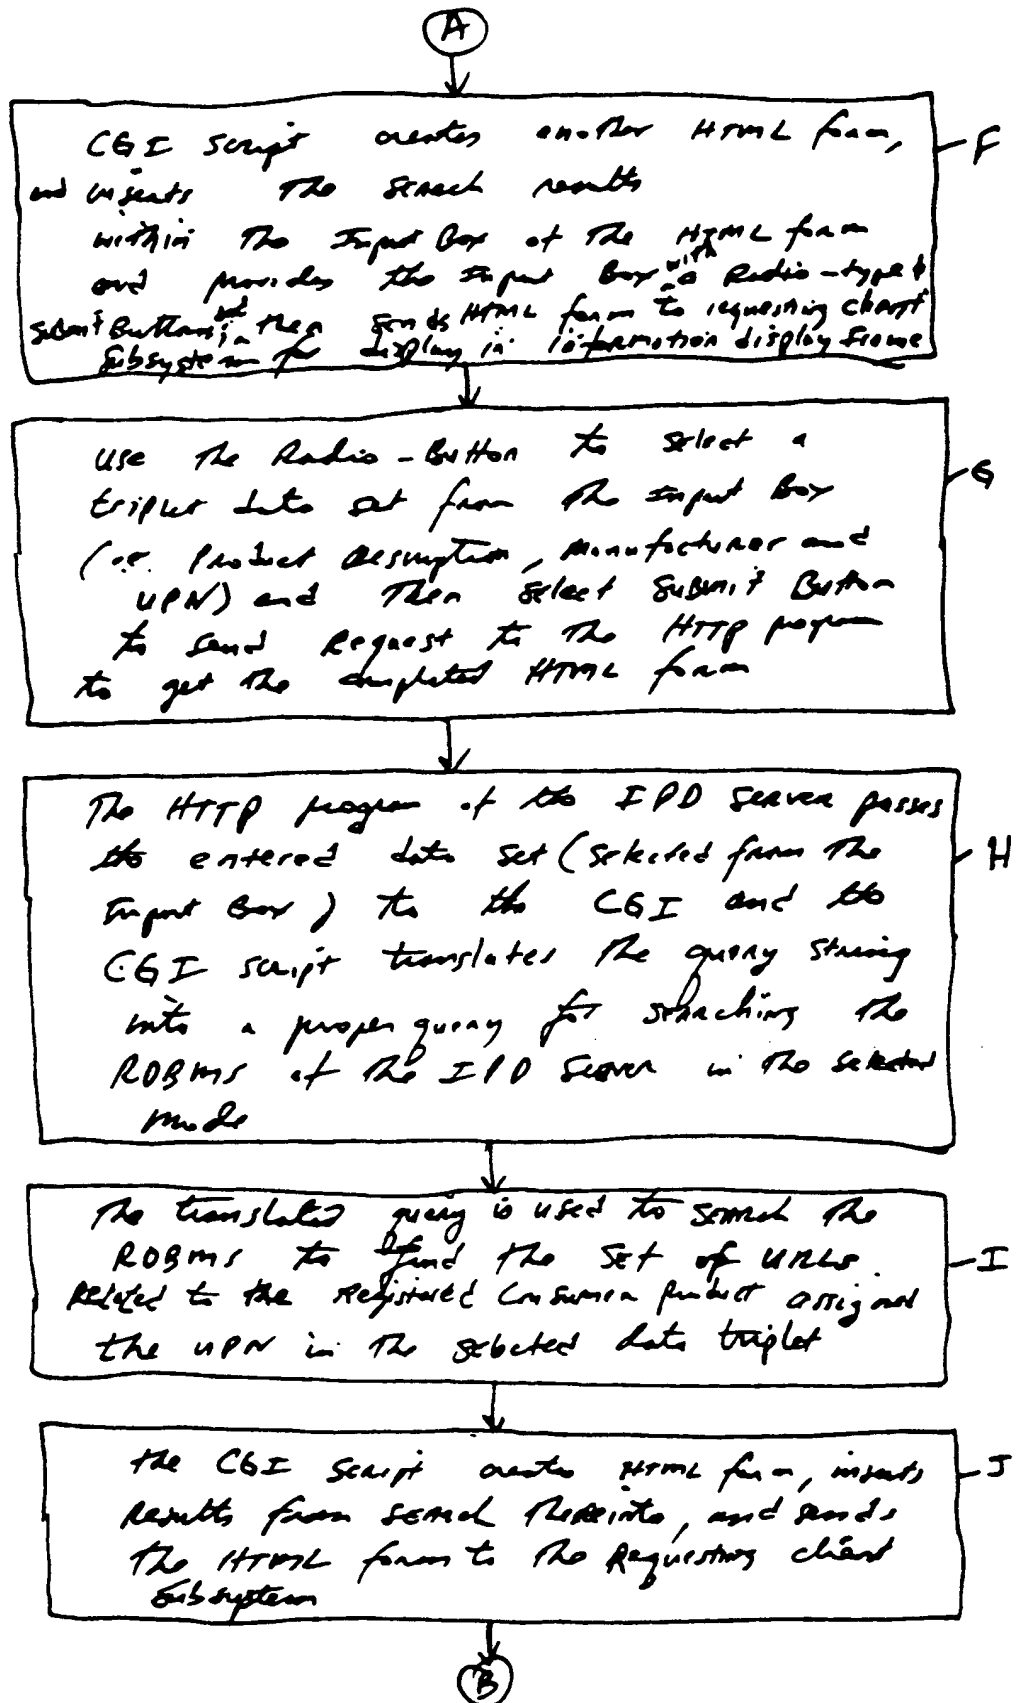 A
CGI script creates another HTML form, F
and inserts the search results
within the Input Box of the HTML form
and provides the Input Box with a Radio-type &
submit Buttons, and then sends HTML form to requesting client
subsystem for display in information display frame
use the Radio-Button to select a
triplet data set from the Input Box G
(i.e. Product Description, Manufacturer and
UPN) and then select Submit Button
to send Request to the HTTP program
to get the completed HTML form
The HTTP program of the IPD Server passes
the entered data set (selected from the H
Input Box) to the CGI and the
CGI script translates the query string
into a proper query for searching the
RDBMS of the IPD Server in the selected
mode
The translated query is used to search the
RDBMS to find the set of URLs I
Related to the registered Consumer Product assigned
the UPN in the selected data triplet
the CGI Script creates HTML form, inserts J
Results from search thereinto, and sends
the HTML form to the Requesting client
Subsystem
B